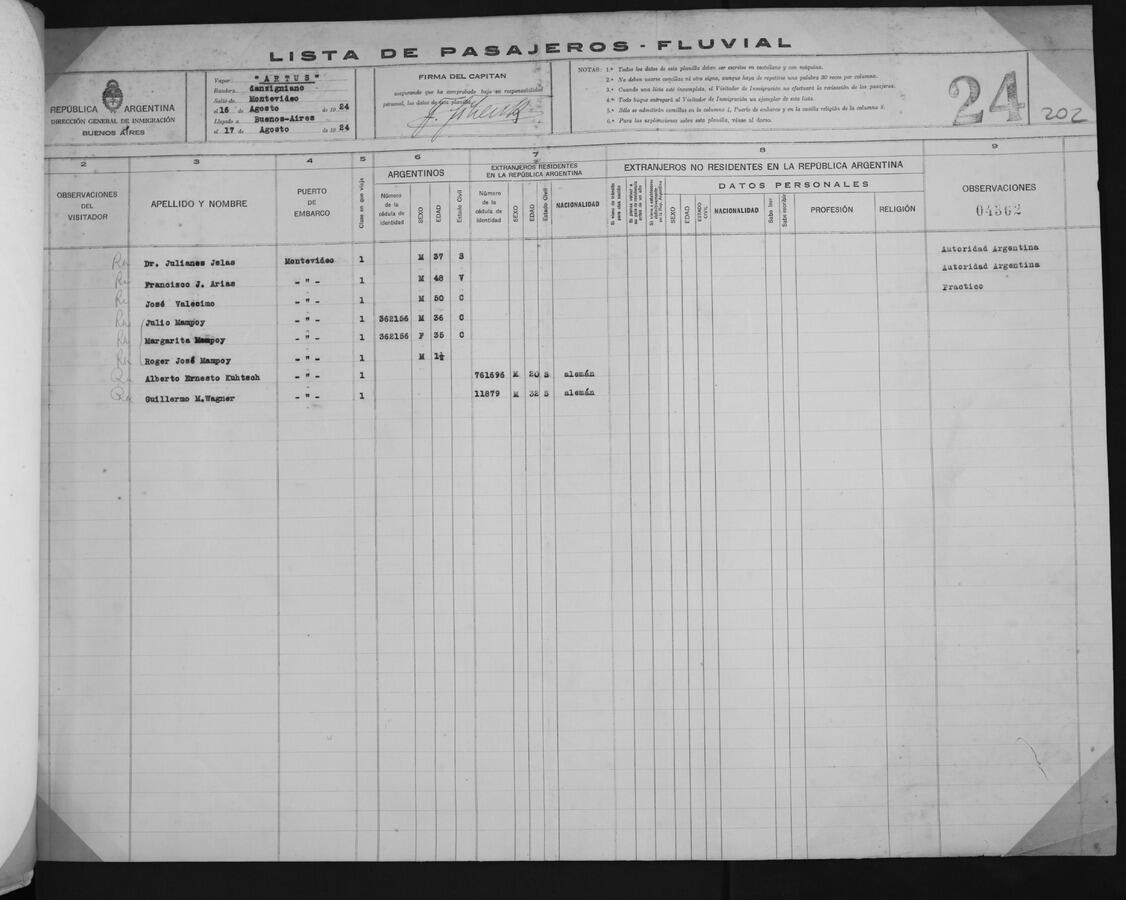 LISTA DE PASAJEROS - FLUVIAL
REPÚBLICA ARGENTINA
DIRECCIÓN GENERAL DE INMIGRACIÓN
BUENOS AIRES
Vapor "ARTUS"
Bandera danzigniano
Salió de Montevideo
el 16 de Agosto de 1924
Llegado a Buenos-Aires
el 17 de Agosto de 1924
FIRMA DEL CAPITAN
asegurando que ha comprobado bajo su responsabilidad
personal, los datos de esta planilla
NOTAS: 1.ª Todos los datos de esta planilla deben ser escritos en castellano y con máquina.
2.ª No deben usarse comillas ni otro signo, aunque haya de repetirse una palabra 20 veces por columna.
3.ª Cuando una lista esté incompleta, el Visitador de Inmigración no efectuará la revisación de los pasajeros.
4.ª Todo buque entregará al Visitador de Inmigración un ejemplar de esta lista.
5.ª Sólo se admitirán comillas en la columna 4, Puerto de embarco y en la casilla religión de la columna 8.
6.ª Para las explicaciones sobre esta planilla, véase al dorso.
24
202
2 3 4 5 6 7 8 9
OBSERVACIONES DEL VISITADOR
APELLIDO Y NOMBRE
PUERTO DE EMBARCO
Clase en que viaja
ARGENTINOS
Número de la cédula de identidad
SEXO
EDAD
Estado Civil
EXTRANJEROS RESIDENTES EN LA REPÚBLICA ARGENTINA
Número de la cédula de identidad
SEXO
EDAD
Estado Civil
NACIONALIDAD
EXTRANJEROS NO RESIDENTES EN LA REPÚBLICA ARGENTINA
DATOS PERSONALES
SEXO
EDAD
ESTADO CIVIL
NACIONALIDAD
Sabe leer
Sabe escribir
PROFESIÓN
RELIGIÓN
OBSERVACIONES
04362
Dr. Julianes Jelas Montevideo 1 M 37 S Autoridad Argentina
Francisco J. Arias - " - 1 M 48 V Autoridad Argentina
José Valecimo - " - 1 M 50 C Practico
Julio Mampoy - " - 1 362156 M 36 C
Margarita Mampoy - " - 1 362156 F 35 C
Roger José Mampoy - " - 1 M 1½
Alberto Ernesto Kuhtsch - " - 1 761696 M 20 S alemán
Guillermo M.Wagner - " - 1 11879 M 32 S alemán